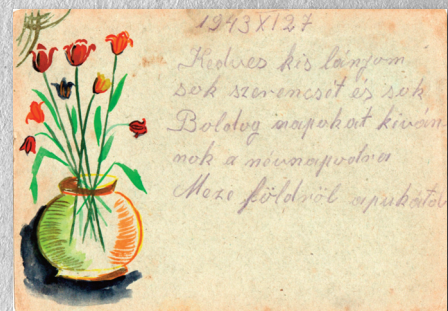 1943 XI 27
Kedves kis lányom
sok szerencsét és sok
Boldog napokat kíván
nok a névnapodra
Meze földről apukától